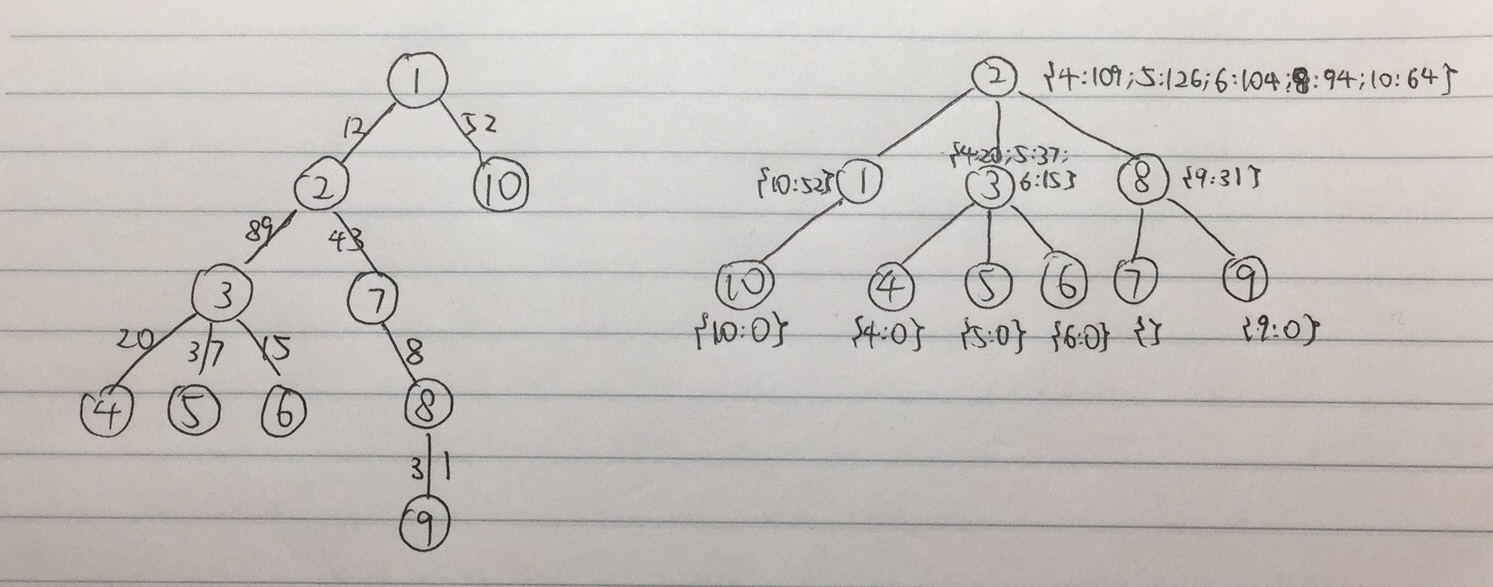 1
12 52
2 10
89 43
3 7
20 37 15 8
4 5 6 8
31
9
2 {4:109;5:126;6:104;8:94;10:64}
{4:20;5:37;
{10:52} 1 3 6:15} 8 {9:31}
10 4 5 6 7 9
{10:0} {4:0} {5:0} {6:0} {} {9:0}